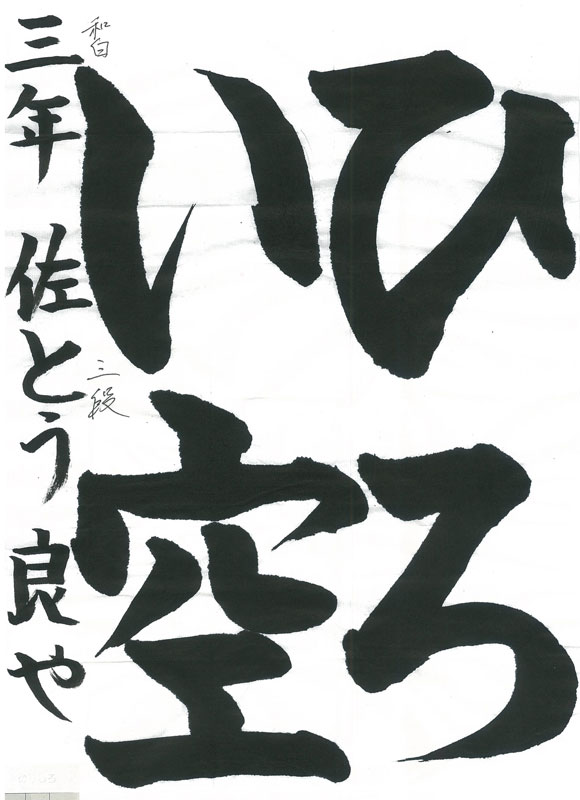 ひろ
い空
三年 佐とう 良や
和白
三段